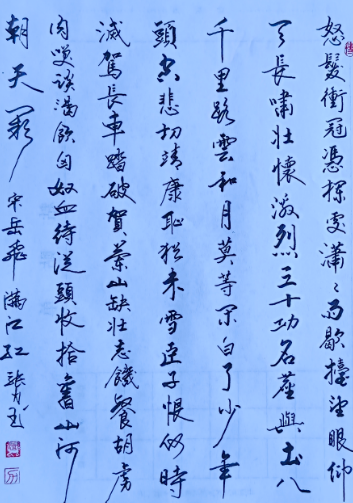 怒髮衝冠憑欄處瀟〻雨歇擡望眼仰
天長嘯壯懷激烈三十功名塵與土八
千里路雲和月莫等閒白了少年
頭空悲切靖康恥猶未雪臣子恨何時
滅駕長車踏破賀蘭山缺壯志饑餐胡虜
肉笑談渴飲匈奴血待從頭收拾舊山河
朝天闕 宋岳飛滿江紅 張